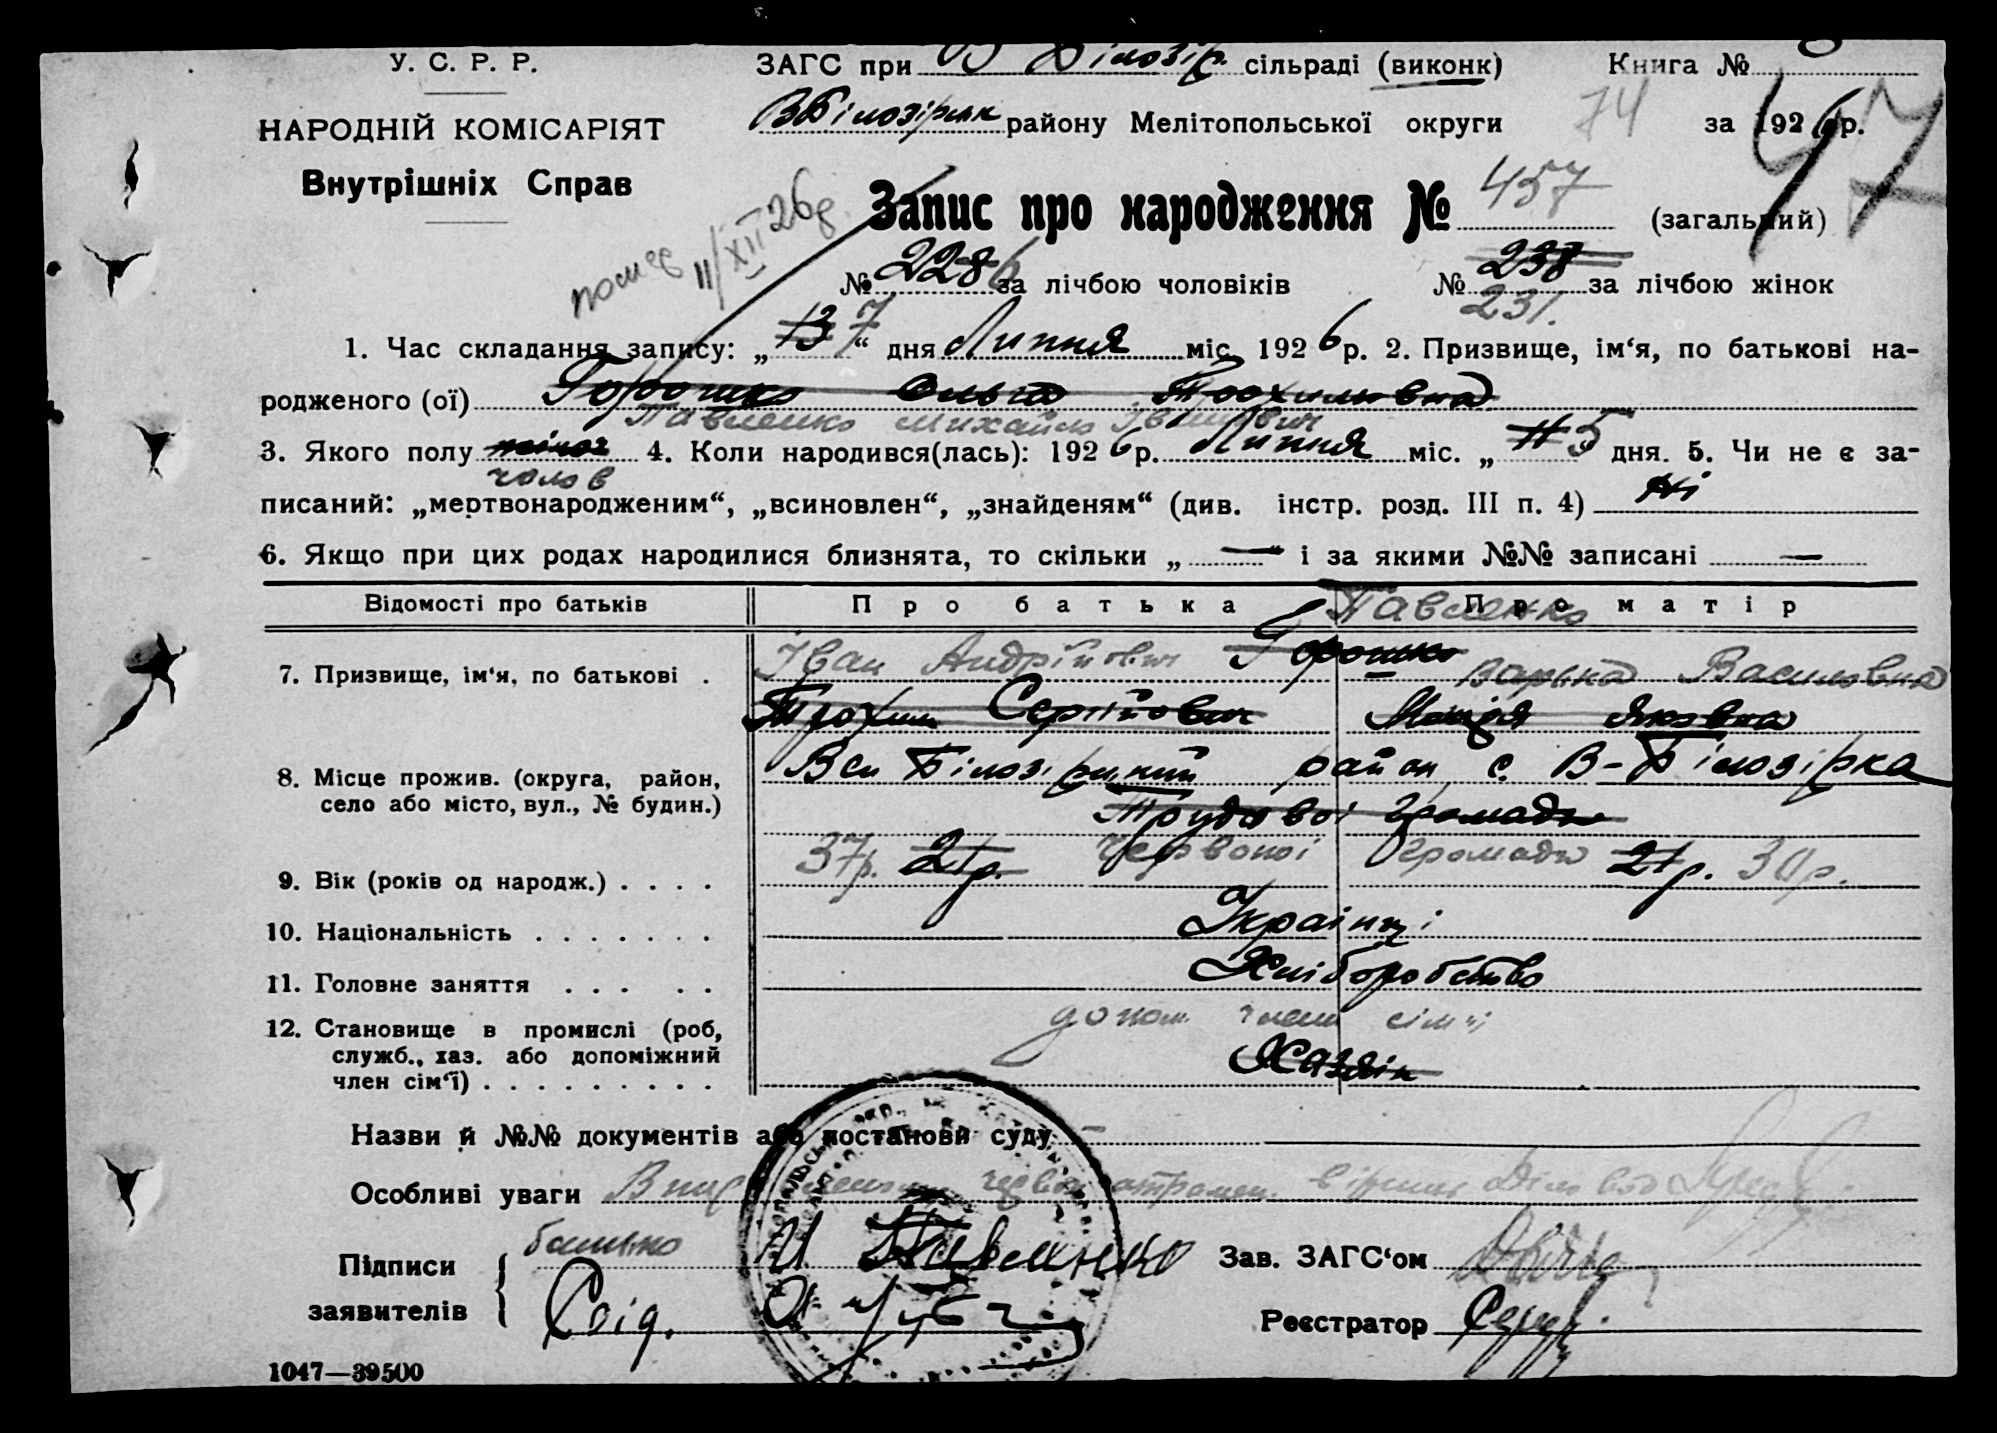 У. С. Р. Р.
НАРОДНІЙ КОМІСАРІЯТ
Внутрішніх Справ
ЗАГС при В Білозір. сільраді (виконк) Книга №
ВБілозірськ району Мелітопольської округи 74 за 1926 р. 47
Запис про народження № 457 (загальний)
11/XII 26
№ 228 6 за лічбою чоловіків № 238 за лічбою жінок
231.
1. Час складання запису: „ 13 7 “ дня Липня міс. 1926 р. 2. Призвище, ім‘я, по батькові на-
родженого (ої) Горошко Ольга Трохимовна
Павленко Михайло Іванович
3. Якого полу жіноч 4. Коли народився(лась): 1926 р. Липня міс. „ 11 5 дня. 5. Чи не є за-
чолов
писаний: „мертвонародженим“, „всиновлен“, „знайденям“ (див. інстр. розд. III п. 4) Ні
6. Якщо при цих родах народилися близнята, то скільки „ — “ і за якими №№ записані —
Відомості про батьків Про батька Про матір
Павленко
7. Призвище, ім‘я, по батькові . Іван Андрійович Горошко Варька Василовна
Трохим Сергійович Марія Яковна
8. Місце прожив. (округа, район, Вел Білозірський район с. В-Білозірка
село або місто, вул., № будин.) Трудової громади
Червоної громади
9. Вік (років од народж.) . . . . 37р. 21р. 21р. 30р.
10. Національність . . . . . . . Українці
11. Головне заняття . . . . . Хліборобство
12. Становище в промислі (роб, допом. член сім'ї
служб., хаз. або допоміжний
член сім‘ї) . . . . . . . . . Хазяїн
Назви й №№ документів або постанови суду —
Особливі уваги червон. атрамен. вірним Діловод
Підписи батько И Павленко Зав. ЗАГС‘ом
заявителів Свід. Реєстратор
1047—39500